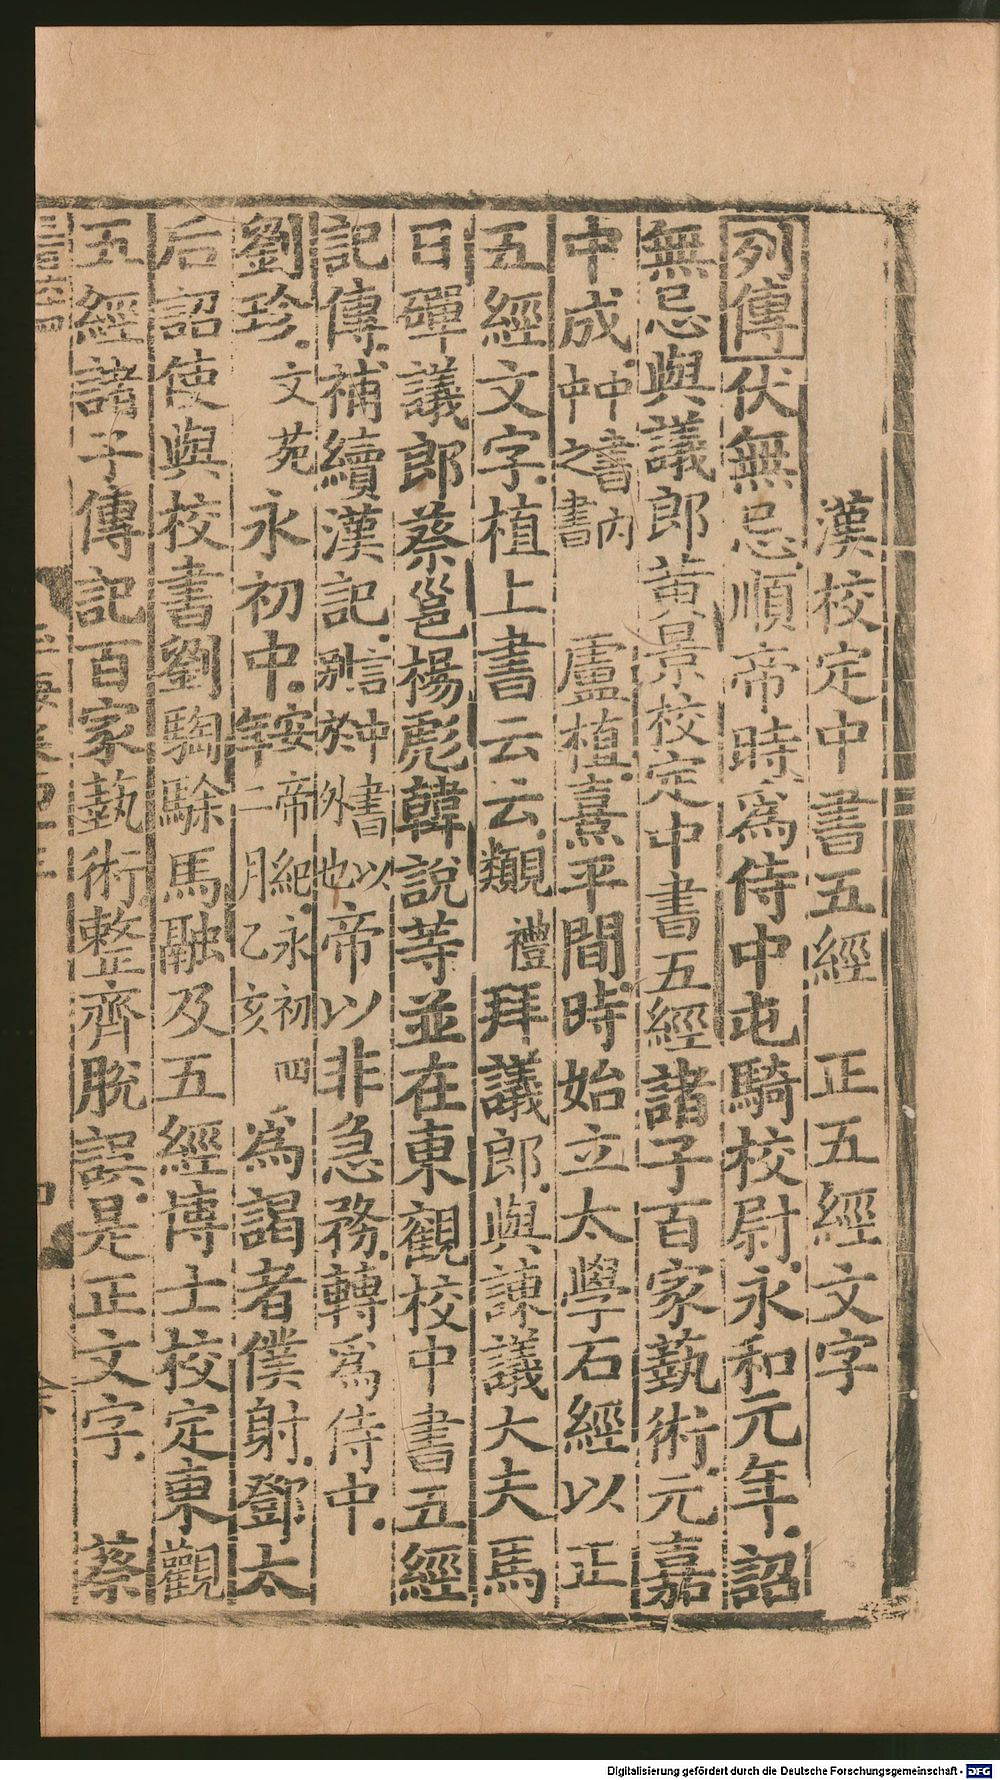 漢校定中書五經　正五經文字
列傳伏無忌順帝時爲侍中屯騎校尉永和元年詔
無忌與議郎黃景校定中書五經諸子百家蓺術元嘉
中成中書內中之書　盧植熹平間時始立太學石經以正
五經文字植上書云云覶禮拜議郎與諫議大夫馬
日磾議郎蔡邕楊彪韓說等並在東觀校中書五經
記傳補續漢記言中書以別於外也帝以非急務轉爲侍中
劉珍文苑永初中安帝紀永初四年二月乙亥爲謁者僕射鄧太
后詔使與校書劉騊駼馬融及五經博士校定東觀
五經諸子傳記百家蓺術整齊脫誤是正文字　蔡
Digitalisierung gefördert durch die Deutsche Forschungsgemeinschaft - DFG